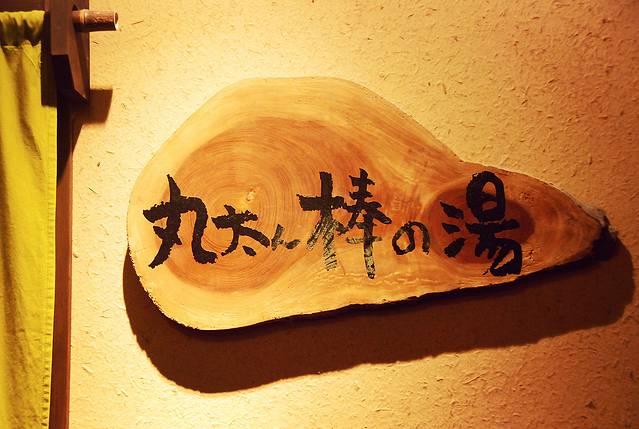 丸太ん棒の湯